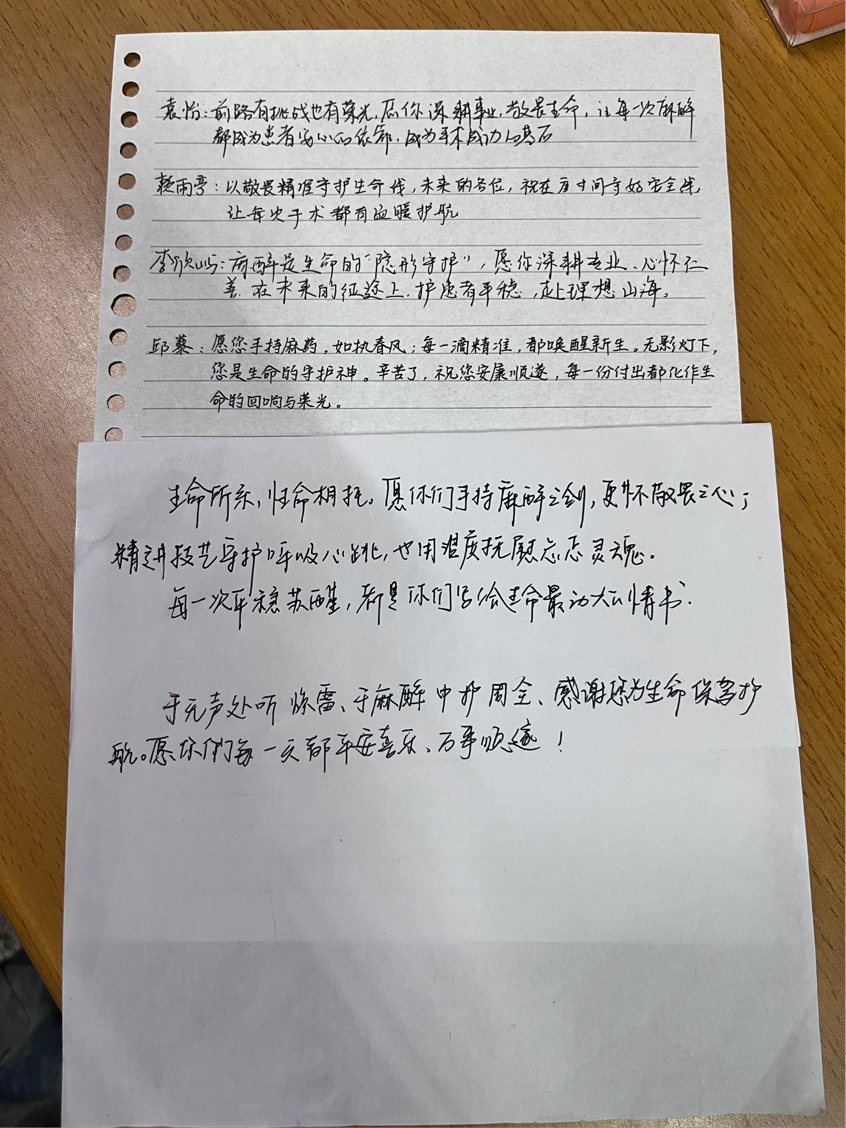 袁怡：前路有挑战也有荣光，愿你深耕事业，敬畏生命，让每一次麻醉
都成为患者安心的依靠，成为手术成功的基石
赖雨亭：以敬畏精准守护生命线，未来的各位，祝在方寸间守好安全线，
让每次手术都有温暖护航
李欣屿：麻醉是生命的“隐形守护”，愿你深耕专业、心怀仁
善，在未来的征途上，护患者平稳，赴理想山海。
邱慕：愿您手持麻药，如执春风；每一滴精准，都唤醒新生。无影灯下，
您是生命的守护神。辛苦了，祝您安康顺遂，每一份付出都化作生
命的回响与荣光。
生命所系，性命相托。愿你们手持麻醉之剑，更怀敬畏之心；
精进技艺守护呼吸心跳，也用温度抚慰忐忑灵魂。
每一次平稳苏醒，都是你们写给生命最动人的情书.
于无声处听惊雷、于麻醉中护周全、感谢您为生命保驾护
航。愿你们每一天都平安喜乐、万事顺遂！